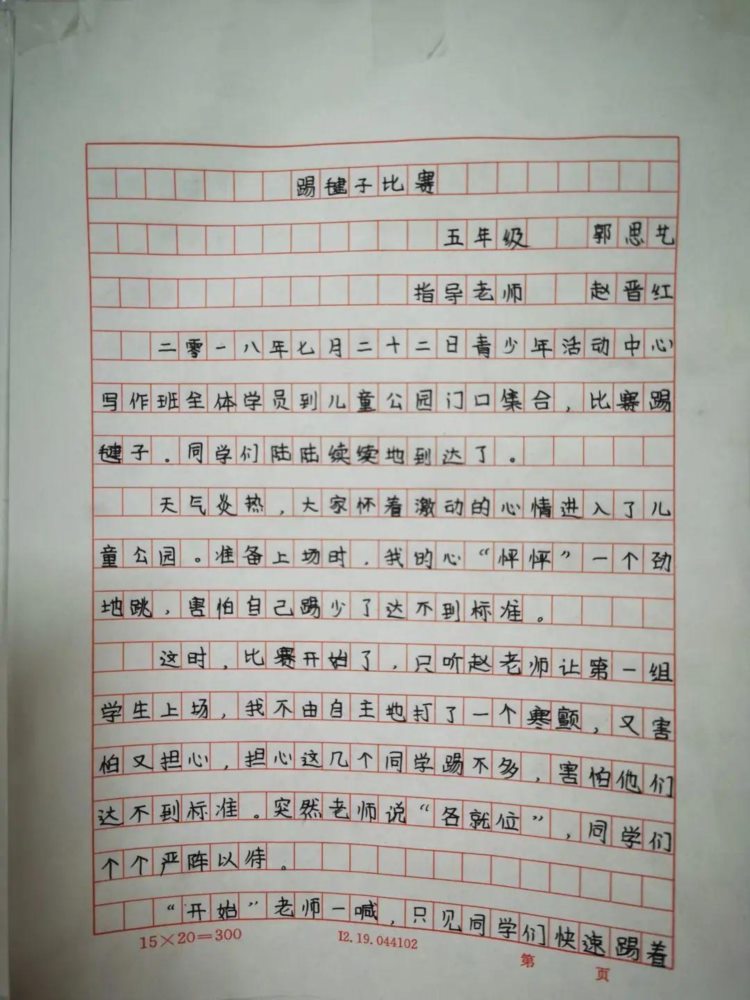 踢毽子比赛
五年级 郭思艺
指导老师 赵晋红
二零一八年七月二十二日青少年活动中心
写作班全体学员到儿童公园门口集合，比赛踢
毽子。同学们陆陆续续地到达了。
天气炎热，大家怀着激动的心情进入了儿
童公园。准备上场时，我的心“怦怦”一个劲
地跳，害怕自己踢少了达不到标准。
这时，比赛开始了，只听赵老师让第一组
学生上场，我不由自主地打了一个寒颤，又害
怕又担心，担心这几个同学踢不多，害怕他们
达不到标准。突然老师说“各就位”，同学们
个个严阵以待。
“开始”老师一喊，只见同学们快速踢着
15×20=300 12.19.044102 第 页